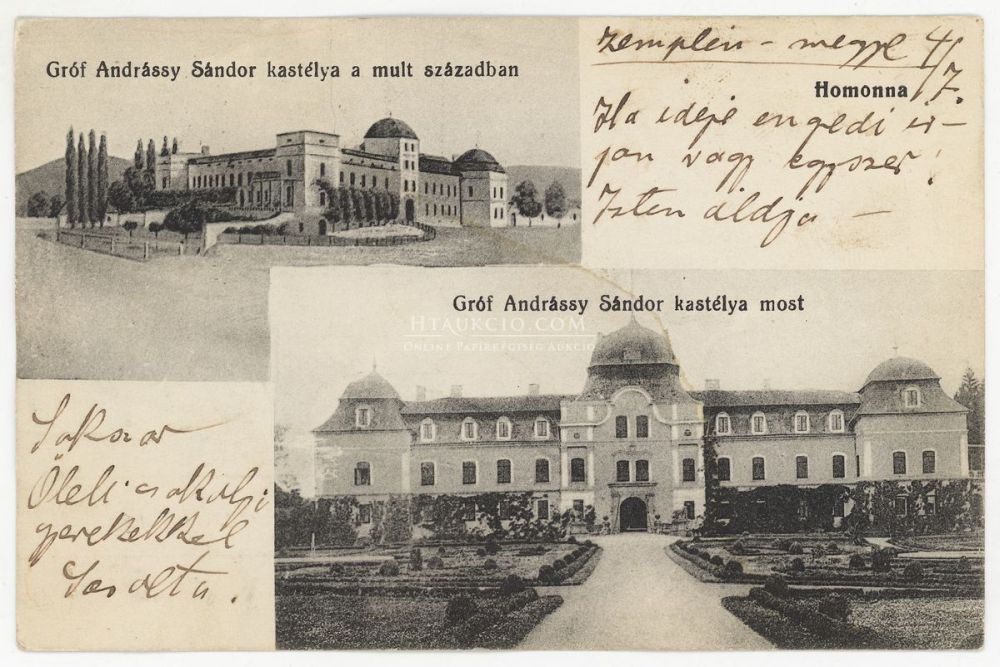 Gróf Andrássy Sándor kastélya a mult században
Zemplén - megye 4/7.
Homonna
Ha ideje engedi ir-
jon vagy egyszer!
Isten áldja –
Gróf Andrássy Sándor kastélya most
HTAUKCIO.COM
ONLINE PAPÍRRÉGISÉG AUKCIÓ
Sokszor
Öleli
gyerekekkel
Sarolta.